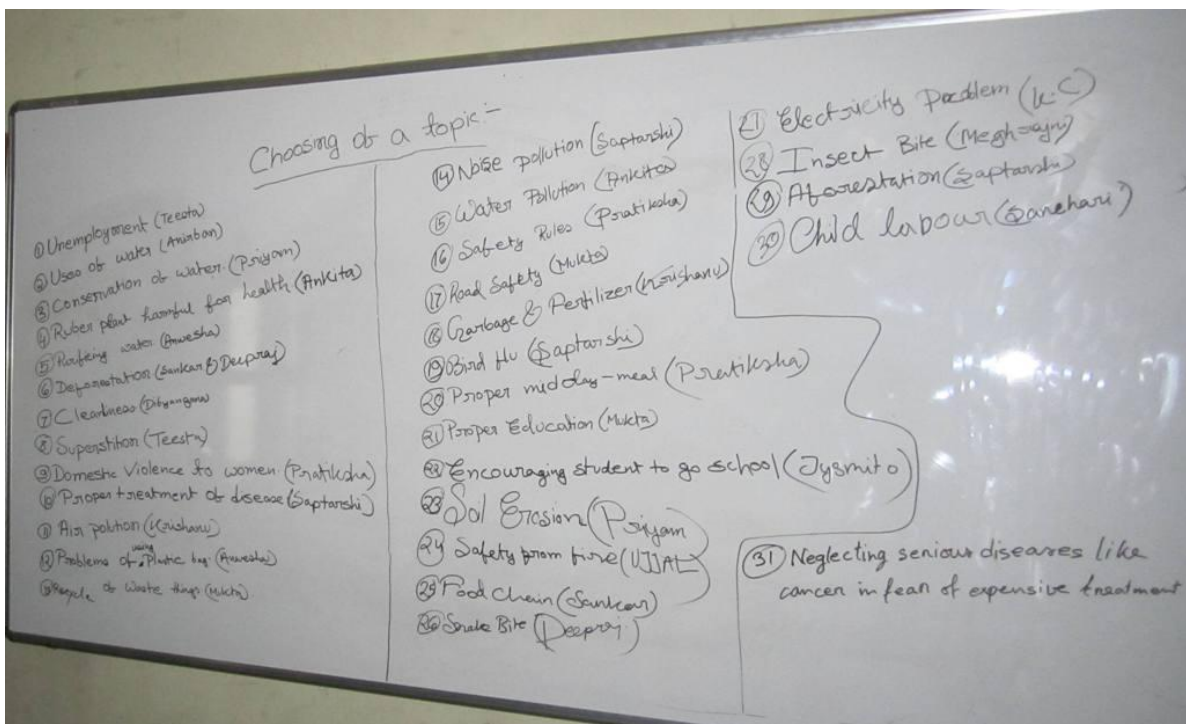 Choosing of a topic:-
① Unemployment (Teesta)
② Uses of water (Anirban)
③ Conservation of water. (Priyam)
④ Ruber plant harmful for health (Ankita)
⑤ water (Anwesha)
⑥ Deforestation (Sankar & Deepraj)
⑦ Cleanliness
⑧ Superstition (Teesta)
⑨ Domestic Violence to women. (Pratiksha)
⑩ Proper treatment of disease (Saptarshi)
⑪ Air polution (Krishanu)
⑫ Problems of using Plastic bag (Anwesha)
⑬ Recycle of Waste things (Mukta)
⑭ Noise pollution (Saptarshi)
⑮ Water Pollution (Ankita)
⑯ Safety Rules (Pratiksha)
⑰ Road Safety (Mukta)
⑱ Garbage & Fertilizer (Krishanu)
⑲ Bird flu (Saptarshi)
⑳ Proper mid day-meal (Pratiksha)
㉑ Proper Education (Mukta)
㉒ Encouraging student to go school (Jysmito)
㉓ Soil Erosion (Priyam
㉔ Safety from fire (UJJAL)
㉕ Food Chain (Sankar)
㉖ Snake Bite (Deepraj.)
Electricity Problem (K.C)
㉘ Insect Bite
㉙ Aforestation (Saptarshi)
㉚ Child labour (Sanchari)
㉛ Neglecting serious diseases like
cancer in fear of expensive treatment